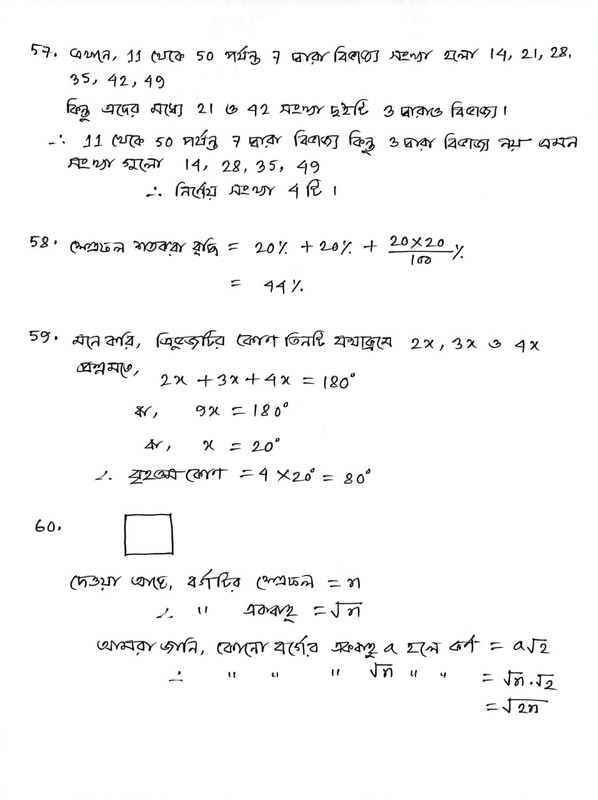 57. এখানে, 11 থেকে 50 পর্যন্ত 7 দ্বারা বিভাজ্য সংখ্যা হলো 14, 21, 28,
35, 42, 49
কিন্তু এদের মধ্যে 21 ও 42 সংখ্যা দুইটি 3 দ্বারাও বিভাজ্য।
∴ 11 থেকে 50 পর্যন্ত 7 দ্বারা বিভাজ্য কিন্তু 3 দ্বারা বিভাজ্য নয় এমন
সংখ্যা গুলো 14, 28, 35, 49
∴ নির্ণেয় সংখ্যা 4 টি।
58. ক্ষেত্রফল শতকরা বৃদ্ধি = 20% + 20% + \frac{20×20}{100}%
= 44%
59. মনে করি, ত্রিভুজটির কোণ তিনটি যথাক্রমে 2x, 3x ও 4x
প্রশ্নমতে,
2x + 3x + 4x = 180°
বা, 9x = 180°
বা, x = 20°
∴ বৃহত্তম কোণ = 4 × 20° = 80°
60.
দেওয়া আছে, বর্গটির ক্ষেত্রফল = n
∴ " একবাহু = √n
আমরা জানি, কোনো বর্গের একবাহু a হলে কর্ণ = a√2
∴ " " " √n " " = √n.√2
= √2n